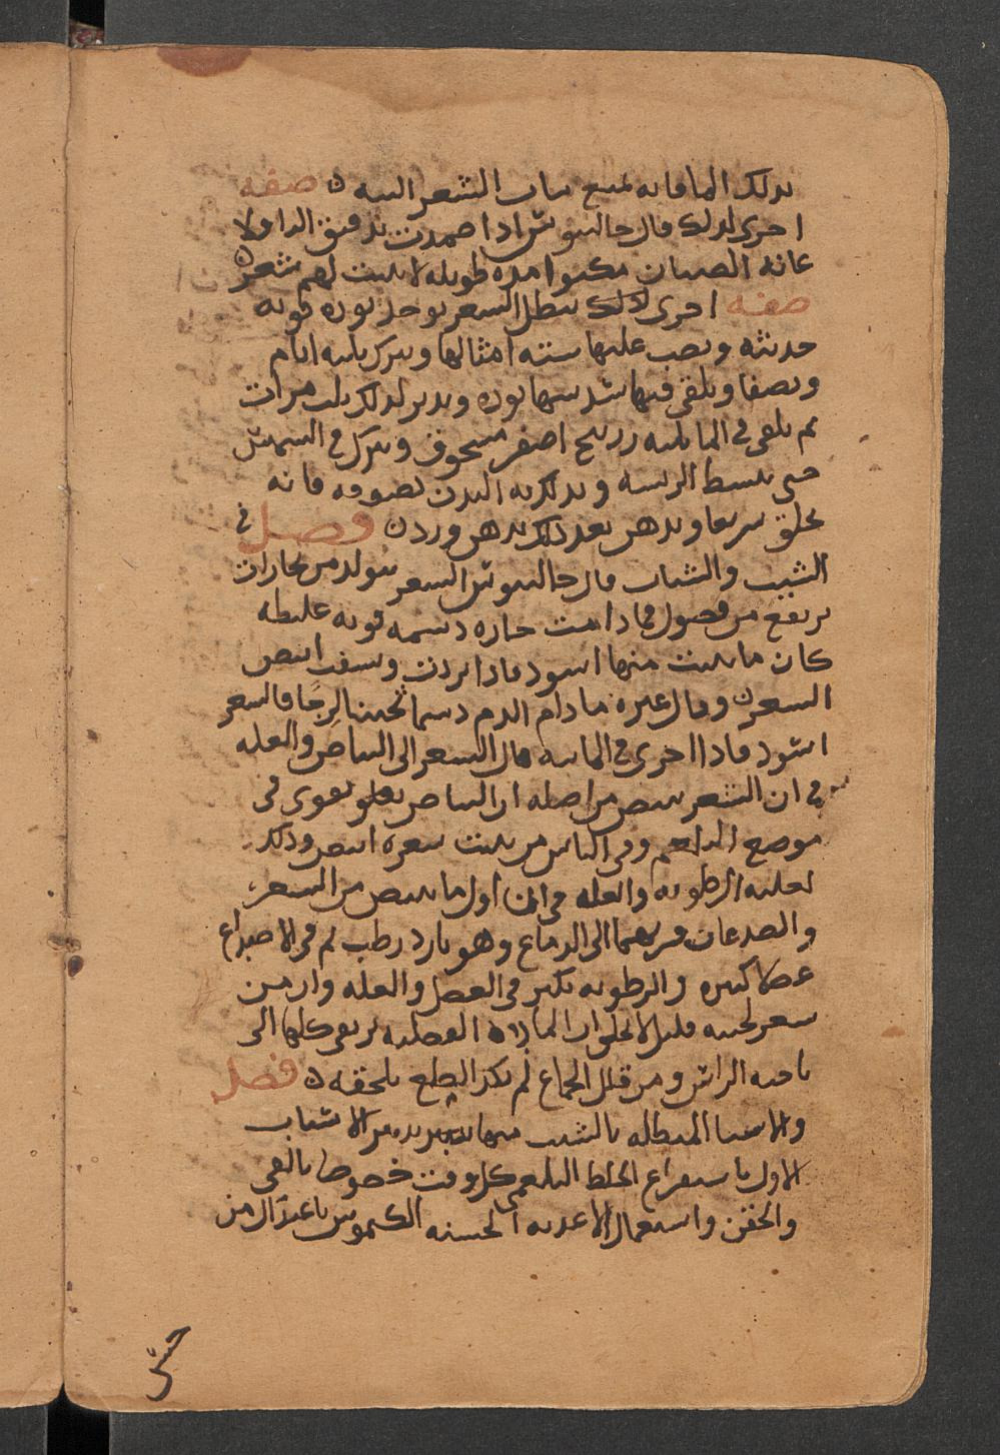 بذلك الما فانه يمنع نبات الشعر البته ه صفه
اخرى لذلك قال جالينوس اذا ضمدت بدقيق الباقلا
عانة الصبيان مكثوا مدة طويلة لا ينبت لهم شعر ه
صفه اخرى لذلك تبطل الشعر يوخذ نوره قويه
حديثه ويصب عليها ستة امثالها ويترك ثلثه ايام
ويصفا ويلقى فيها سدسها نوره ويدبر كذلك ثلث مرات
ثم يلقى في الما ثلثه زرنيخ اصفر مسحوق ويترك في الشمس
حتى يسمط الريشه ويدلك به البدن بصوفه فانه
يحلق سريعا ويدهن بعد ذلك بدهن ورد ه فصل في
الشيب والشباب قال جالينوس الشعر يتولد من بخارات
ترتفع من فضول فما دامت حاره دسمه قويه غليظه
كان ما ينبت منها اسود فاذا بردت ونشفت ابيض
الشعر ه وقال غيره ما دام الدم دسما ثخينا لزجا فالشعر
اسود فاذا اخرى في المائيه مال الشعر الى البياض والعله
في ان الشعر يبيض من اصله ان البياض يعلو يقوى في
موضع البلغم وفي الناس من ينبت شعره ابيض وذلك
لغلبة الرطوبه والعله في ان اول ما يبيض من الشعر
والصدغان قربهما الى الدماغ وهو بارد رطب ثم في الاصداغ
عضلا كبيره والرطوبه تكثر في العضل والعله وان من
شعر لحيته قليل لا يخلو ان الماده الفضليه ترتقي كلها الى
ناحية الراس ومن قلل الجماع لم يكد الصلع يلحقه ه فصل
والاشيا المبطله بالشيب منها تدبير يدبر الاسباب
الاول باستفراغ الخلط البلغمي كل وقت خصوصا بالقي
والحقن واستعمال الاغذيه الحسنه الكيموس باعتدال من
حسن